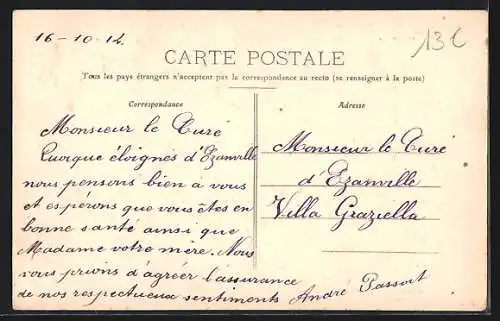 16-10-12.
13€
CARTE POSTALE
Tous les pays étrangers n'acceptent pas la correspondance au recto (se renseigner à la poste)
Correspondance
Monsieur le Curé
Quoique éloignés d'Ezanville
nous pensons bien à vous
et espérons que vous êtes en
bonne santé ainsi que
Madame votre mère. Nous
vous prions d'agréer l'assurance
de nos respectueux sentiments André Passort
Adresse
Monsieur le Curé
d'Ezanville
Villa Graziella